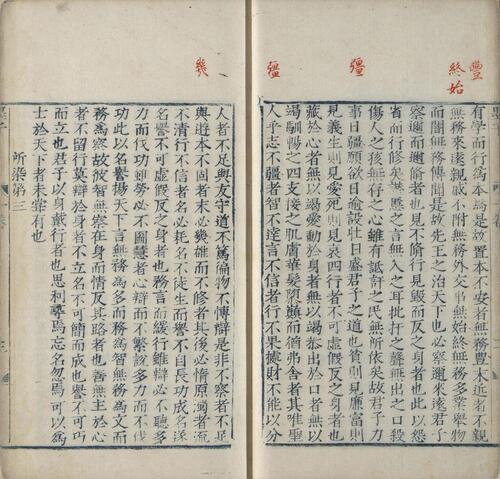 豐
終始
彊
彊
幾
有學而行爲本焉是故置本不安者無務豐末近者不親
無務來遠親戚不附無務外交事無始終無務多業舉物
而闇無務博聞是故先王之治天下也必察邇來遠君子
察邇而邇脩者也見不脩行見毀而反之身者也此以怨
省而行修矣譖慝之言無入之耳批扞之聲無出之口殺
傷人之孩無存之心雖有詆訐之民無所依矣故君子力
事日彊願欲日逾設壯日盛君子之道也貧則見廉富則
見義生則見愛死則見哀四行者不可虛假反之身者也
藏於心者無以竭愛動於身者無以竭恭出於口者無以
竭馴暢之四支接之肌膚華髮隳顛而猶弗舍者其唯聖
人乎志不彊者智不達言不信者行不果據財不能以分
人者不足與友守道不篤徧物不博辯是非不察者不足
與遊本不固者末必幾雄而不修者其後必惰原濁者流
不清行不信者名必耗名不徒生而譽不自長功成名遂
名譽不可虛假反之身者也務言而緩行雖辯必不聽多
力而伐功雖勞必不圖慧者心辯而不繁說多力而不伐
功此以名譽揚天下言無務爲多而務爲智無務爲文而
務爲察故彼智無察在身而情反其路者也善無主於心
者不留行莫辯於身者不立名不可簡而成也譽不可巧
而立也君子以身戴行者也思利尋焉忘名忽焉可以爲
士於天下者未嘗有也
所染第三